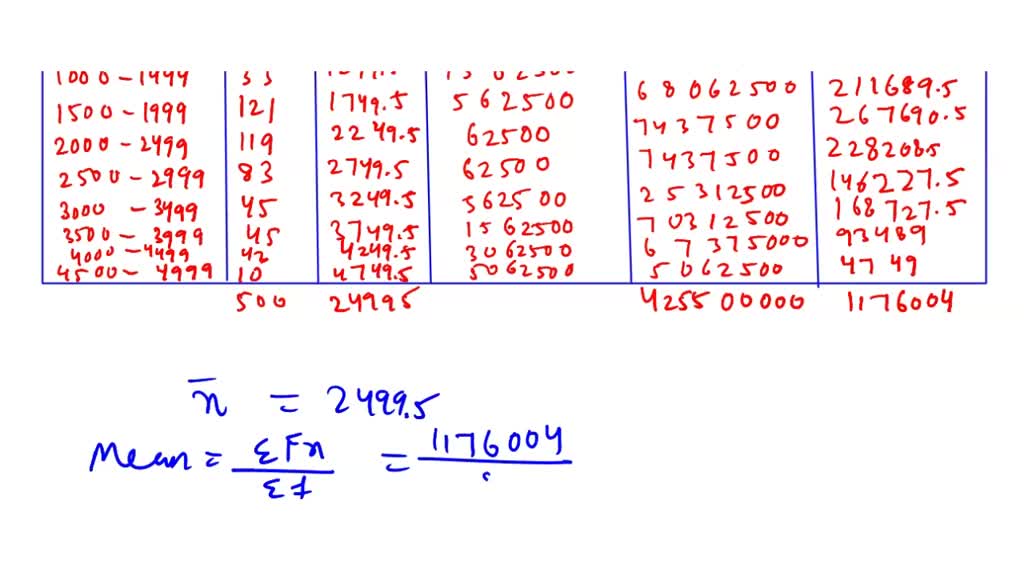 1000 - 1499 33
1500 - 1999 121 1749.5 562500 68062500 211689.5
2000 - 2499 119 2249.5 62500 7437500 267690.5
2500 - 2999 83 2749.5 62500 7437500 2282085
3000 - 3499 45 3249.5 562500 25312500 146227.5
3500 - 3999 45 3749.5 1562500 70312500 168727.5
4000 - 4499 42 4249.5 3062500 67375000 93489
4500 - 4999 10 4749.5 5062500 5062500 4749
500 24995 425500000 1176004
n̅ = 2499.5
Mean = ΣFn / Σf = 1176004